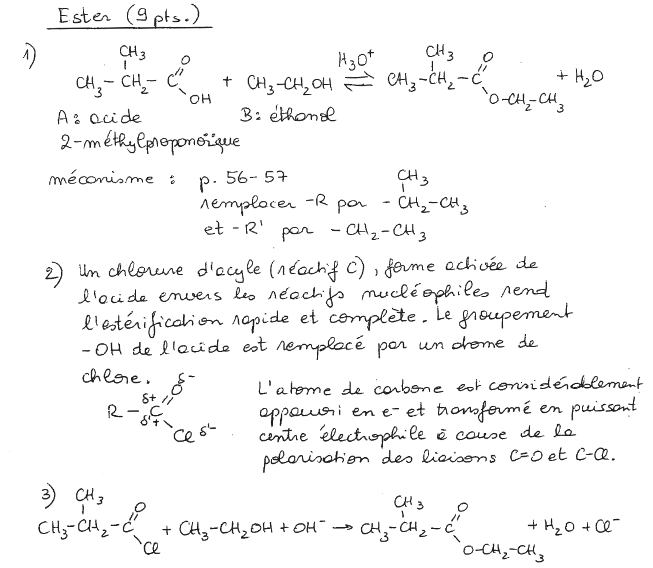 Ester (9 pts.)
1) CH₃-CH₂(CH₃)-C(=O)-OH + CH₃-CH₂OH ⇌ (H₃O⁺) CH₃-CH₂(CH₃)-C(=O)-O-CH₂-CH₃ + H₂O
A: acide B: éthanol
2-méthylpropanoïque
mécanisme : p. 56-57
remplacer -R par -CH₂(CH₃)-CH₃
et -R' par -CH₂-CH₃
2) Un chlorure d'acyle (réactif C), forme activée de
l'acide envers les réactifs nucléophiles rend
l'estérification rapide et complète. Le groupement
-OH de l'acide est remplacé par un atome de
chlore.
R-C(=O)-Cl δ+ δ- δ'+ δ'-
L'atome de carbone est considérablement
appauvri en e⁻ et transformé en puissant
centre électrophile à cause de la
polarisation des liaisons C=O et C-Cl.
3) CH₃-CH₂(CH₃)-C(=O)-Cl + CH₃-CH₂OH + OH⁻ → CH₃-CH₂(CH₃)-C(=O)-O-CH₂-CH₃ + H₂O + Cl⁻